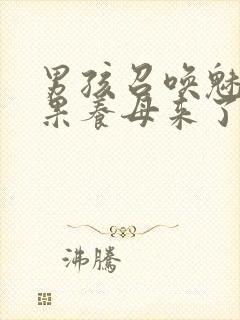 男孩召唤魅
果养母来了
沸騰